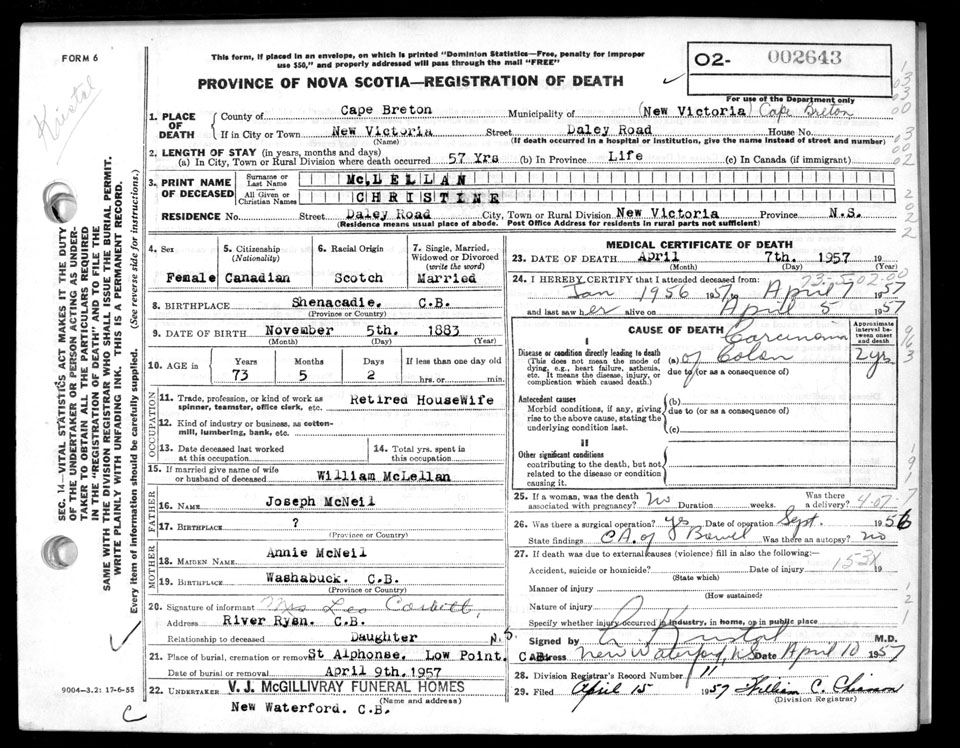 FORM 6
This form, if placed in an envelope, on which is printed "Dominion Statistics—Free, penalty for improper
use $50," and properly addressed will pass through the mail "FREE"
PROVINCE OF NOVA SCOTIA—REGISTRATION OF DEATH
02- 002643
For use of the Department only
Kristal
1. PLACE OF DEATH
County of Cape Breton Municipality of (New Victoria) Cape Breton
If in City or Town New Victoria Street Daley Road House No.
(Name) (If death occurred in a hospital or institution, give the name instead of street and number)
2. LENGTH OF STAY (in years, months and days)
(a) In City, Town or Rural Division where death occurred 57 Yrs (b) In Province Life (c) In Canada (if immigrant)
3. PRINT NAME OF DECEASED
Surname or Last Name McLELLAN
All Given or Christian Names CHRISTINE
RESIDENCE No. Street Daley Road City, Town or Rural Division New Victoria Province N.S.
(Residence means usual place of abode. Post Office Address for residents in rural parts not sufficient)
4. Sex Female
5. Citizenship (Nationality) Canadian
6. Racial Origin Scotch
7. Single, Married, Widowed or Divorced (write the word) Married
8. BIRTHPLACE Shenacadie. C.B.
(Province or Country)
9. DATE OF BIRTH November 5th. 1883
(Month) (Day) (Year)
10. AGE in Years 73 Months 5 Days 2 If less than one day old hrs. or min.
OCCUPATION
11. Trade, profession, or kind of work as spinner, teamster, office clerk, etc. Retired HouseWife
12. Kind of industry or business, as cotton-mill, lumbering, bank, etc.
13. Date deceased last worked at this occupation
14. Total yrs. spent in this occupation
15. If married give name of wife or husband of deceased William McLellan
FATHER
16. Name Joseph McNeil
17. Birthplace ?
(Province or Country)
MOTHER
18. Maiden Name Annie McNeil
19. Birthplace Washabuck. C.B.
(Province or Country)
20. Signature of informant Mrs Leo Corbett,
Address River Ryan. C.B.
Relationship to deceased Daughter N.S.
21. Place of burial, cremation or removal St Alphonse. Low Point.
Date of burial or removal April 9th.1957
22. Undertaker V. J. McGILLIVRAY FUNERAL HOMES
(Name and address)
New Waterford. C.B.
MEDICAL CERTIFICATE OF DEATH
23. DATE OF DEATH April 7th. 1957
(Month) (Day) (Year)
24. I HEREBY CERTIFY that I attended deceased from: 23-5-02.00
Jan 1956 1957 to April 7 1957
and last saw her alive on April 5 1957
CAUSE OF DEATH
Approximate interval between onset and death
I
Disease or condition directly leading to death (a) Carcinoma of Colon 2 yrs
(This does not mean the mode of dying, e.g., heart failure, asthenia, etc. It means the disease, injury, or complication which caused death.)
due to (or as a consequence of)
Antecedent causes
Morbid conditions, if any, giving rise to the above cause, stating the underlying condition last.
(b)
due to (or as a consequence of)
(c)
II
Other significant conditions
contributing to the death, but not related to the disease or condition causing it.
25. If a woman, was the death associated with pregnancy? no Duration weeks. Was there a delivery? 4-07-7
26. Was there a surgical operation? yes Date of operation Sept. 1956
State findings CA. of Bowel Was there an autopsy? no
27. If death was due to external causes (violence) fill in also the following:—
Accident, suicide or homicide? Date of injury 153X 19
(State which)
Manner of injury
(How sustained)
Nature of injury
Specify whether injury occurred in industry, in home, or in public place
Signed by A Kristal M.D.
C.B. Address New Waterford, N.S. Date April 10 1957
28. Division Registrar's Record Number 11
29. Filed April 15 1957 William C.
(Division Registrar)
SEC. 14—VITAL STATISTICS ACT MAKES IT THE DUTY
OF THE UNDERTAKER OR PERSON ACTING AS UNDER-
TAKER TO OBTAIN ALL THE PARTICULARS REQUIRED
IN THE "REGISTRATION OF DEATH" AND TO FILE THE
SAME WITH THE DIVISION REGISTRAR WHO SHALL ISSUE THE BURIAL PERMIT.
WRITE PLAINLY WITH UNFADING INK. THIS IS A PERMANENT RECORD.
Every item of information should be carefully supplied. (See reverse side for instructions.)
9004—3.2: 17-6-55